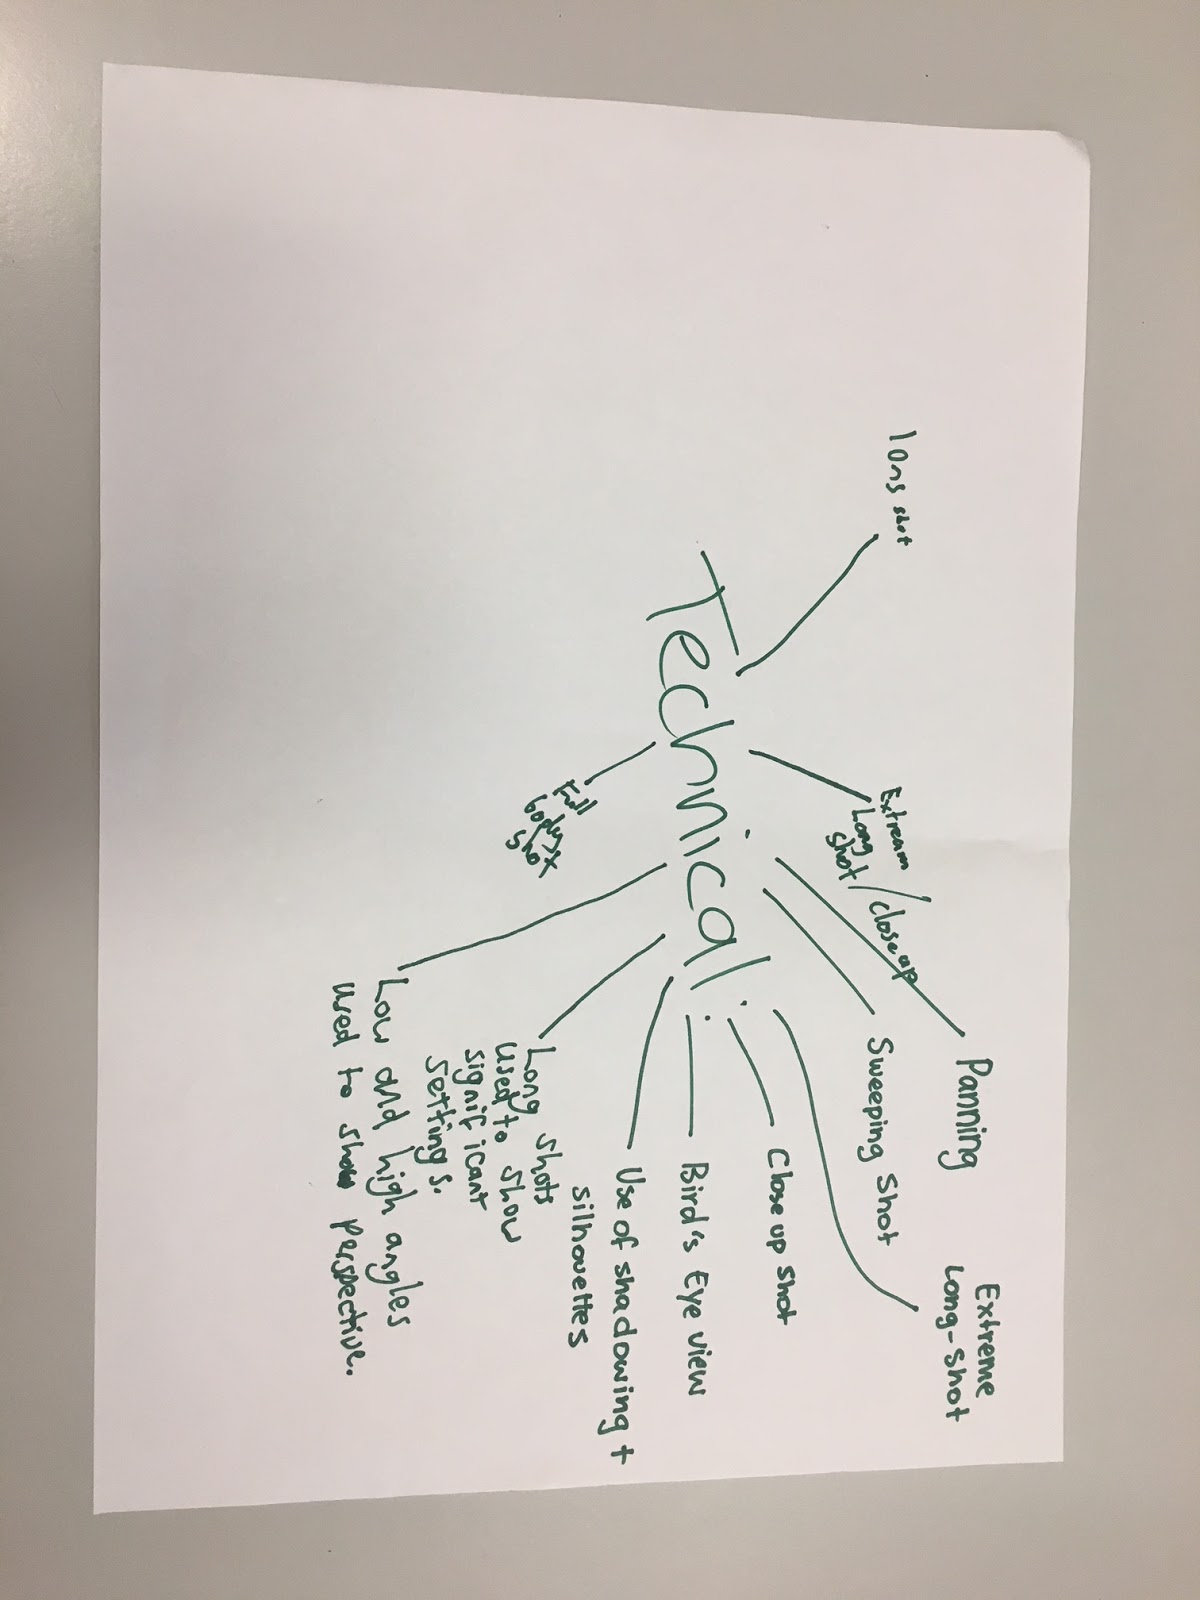 long shot
Extream
Long
shot / close up
Panning
Sweeping Shot
Extreme
Long-Shot
Technical:
Close up shot
Bird's Eye view
Use of shadowing +
silhouettes
Long shots
used to show
significant
settings.
Low and high angles
used to show perspective.
Full
body
shot